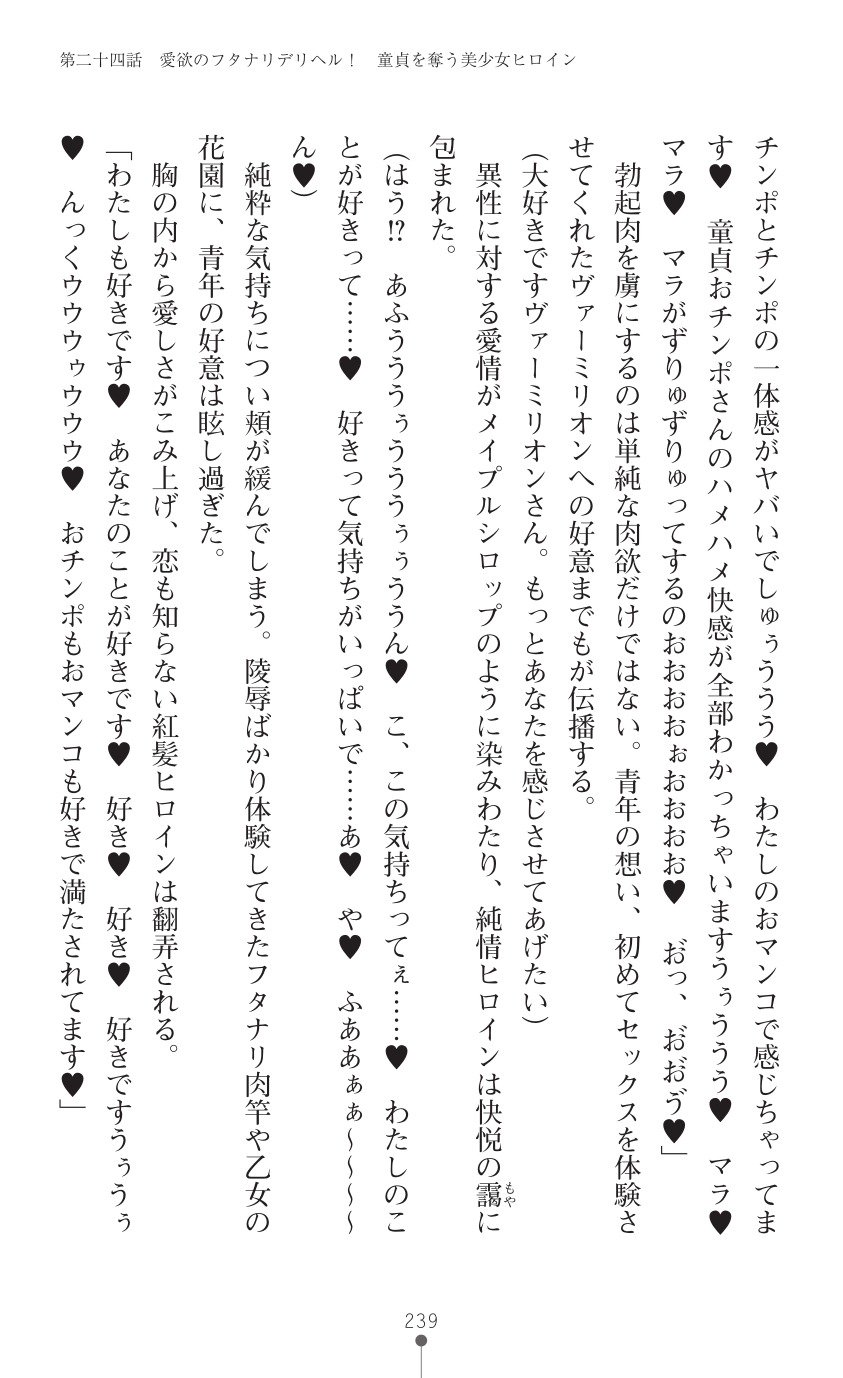 第二十四話　愛欲のフタナリデリヘル！　童貞を奪う美少女ヒロイン
チンポとチンポの一体感がヤバいでしゅぅううう♥　わたしのおマンコで感じちゃってま
す♥　童貞おチンポさんのハメハメ快感が全部わかっちゃいますうぅううう♥　マラ♥
マラ♥　マラがずりゅずりゅってするのおおおおぉおおおお♥　おっ、おおゔ♥」
　勃起肉を虜にするのは単純な肉欲だけではない。青年の想い、初めてセックスを体験さ
せてくれたヴァーミリオンへの好意までもが伝播する。
（大好きですヴァーミリオンさん。もっとあなたを感じさせてあげたい）
　異性に対する愛情がメイプルシロップのように染みわたり、純情ヒロインは快悦の靄に
もや
包まれた。
（はう!?　あふうううぅうううぅぅううん♥　こ、この気持ちってぇ……♥　わたしのこ
とが好きって……♥　好きって気持ちがいっぱいで……あ♥　や♥　ふああぁぁ～～～～
ん♥）
　純粋な気持ちについ頬が緩んでしまう。陵辱ばかり体験してきたフタナリ肉竿や乙女の
花園に、青年の好意は眩し過ぎた。
　胸の内から愛しさがこみ上げ、恋も知らない紅髪ヒロインは翻弄される。
「わたしも好きです♥　あなたのことが好きです♥　好き♥　好き♥　好きですうぅうぅ
♥　んっくウウウゥウウウ♥　おチンポもおマンコも好きで満たされてます♥」
239